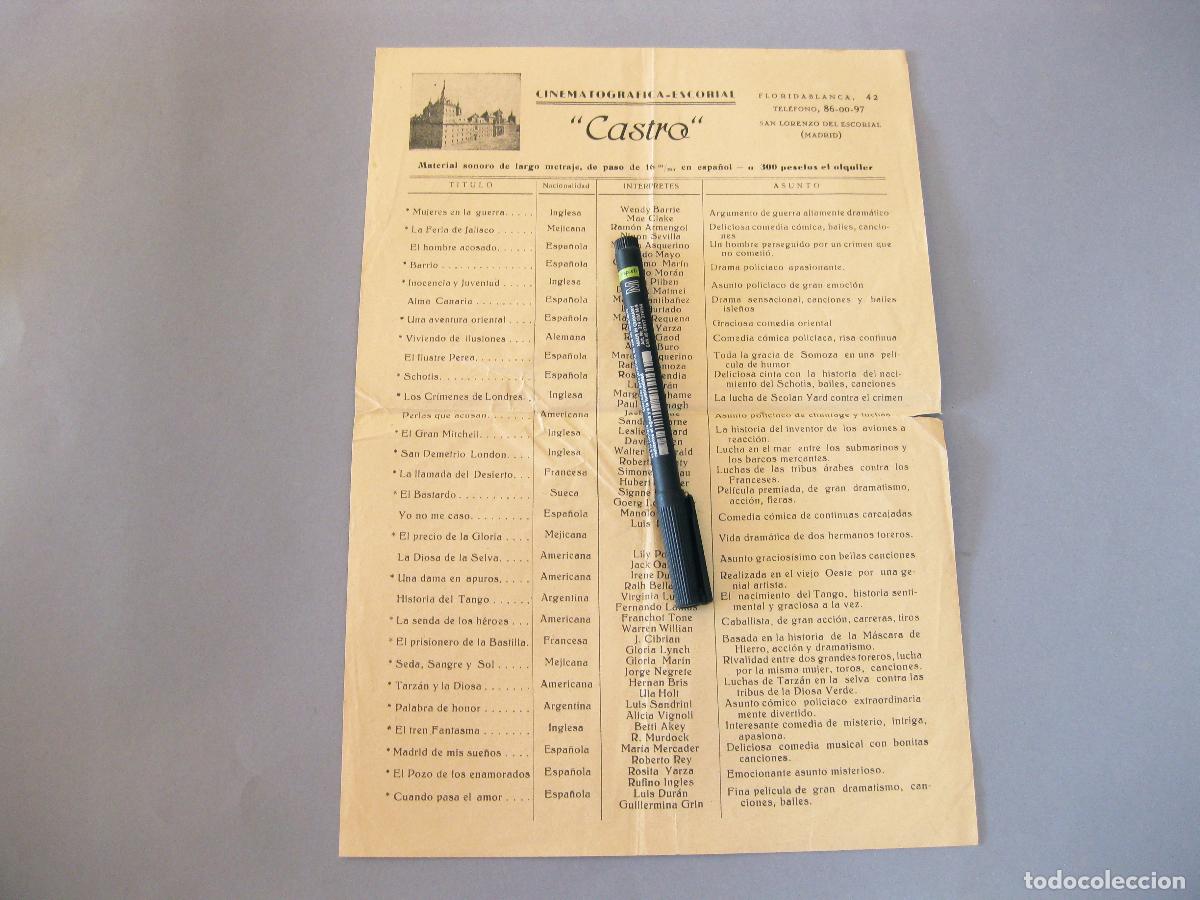 CINEMATOGRAFICA-ESCORIAL
"Castro"
FLORIDABLANCA, 42
TELÉFONO, 86-00-97
SAN LORENZO DEL ESCORIAL
(MADRID)
Material sonoro de largo metraje, de paso de 16 m/m, en español — a 300 pesetas el alquiler
TITULO Nacionalidad INTERPRETES ASUNTO
* Mujeres en la guerra..... Inglesa Wendy Barrie Argumento de guerra altamente dramático
Mae Clake
* La Feria de Jalisco ...... Mejicana Ramón Armengol Deliciosa comedia cómica, bailes, cancio-
Sevilla nes
El hombre acosado...... Española Asquerino Un hombre perseguido por un crimen que
Mayo no cometió.
* Barrio ............ Española Marín Drama policiaco apasionante.
Morán
* Inocencia y Juventud .... Inglesa Pilben Asunto policiaco de gran emoción
Matmei
Alma Canaria ......... Española Drama sensacional, canciones y bailes
isleños
* Una aventura oriental ... Española Requena Graciosa comedia oriental
Yarza
* Viviendo de ilusiones .... Alemana Gaod Comedia cómica policiaca, risa continua
Buro
El Ilustre Perea........ Española Toda la gracia de Somoza en una pelí-
cula de humor
* Schotis............. Española Deliciosa cinta con la historia del naci-
miento del Schotis, bailes, canciones
* Los Crímenes de Londres. Inglesa La lucha de Scolan Yard contra el crimen
Perlas que acusan...... Americana Asunto policiaco de chantage y luchas
* El Gran Mitchell....... Inglesa Leslie La historia del inventor de los aviones a
David reacción.
* San Demetrio London.... Inglesa Walter Lucha en el mar entre los submarinos y
Robert los barcos mercantes.
* La llamada del Desierto.. Francesa Simone Luchas de las tribus árabes contra los
Hubert Franceses.
* El Bastardo .......... Sueca Signne Película premiada, de gran dramatismo,
Goerg acción, fieras.
Yo no me caso......... Española Manolo Comedia cómica de continuas carcajadas
Luis
* El precio de la Gloria .... Mejicana Vida dramática de dos hermanos toreros.
La Diosa de la Selva.... Americana Lily Asunto graciosísimo con bellas canciones
Jack
* Una dama en apuros..... Americana Irene Realizada en el viejo Oeste por una ge-
Ralh nial artista.
Historia del Tango...... Argentina Virginia El nacimiento del Tango, historia senti-
Fernando mental y graciosa a la vez.
* La senda de los héroes ... Americana Franchot Tone Caballista, de gran acción, carreras, tiros
Warren Willian
* El prisionero de la Bastilla. Francesa J. Cibrian Basada en la historia de la Máscara de
Gloria Lynch Hierro, acción y dramatismo.
* Seda, Sangre y Sol ...... Mejicana Gloria Marín Rivalidad entre dos grandes toreros, lucha
Jorge Negrete por la misma mujer, toros, canciones.
* Tarzán y la Diosa ....... Americana Hernan Bris Luchas de Tarzán en la selva contra las
Ula Holt tribus de la Diosa Verde.
* Palabra de honor ....... Argentina Luis Sandrini Asunto cómico policiaco extraordinaria
Alicia Vignoli mente divertido.
* El tren Fantasma ....... Inglesa Betti Akey Interesante comedia de misterio, intriga,
R. Murdock apasiona.
* Madrid de mis sueños .... Española María Mercader Deliciosa comedia musical con bonitas
Roberto Rey canciones.
* El Pozo de los enamorados Española Rosita Yarza Emocionante asunto misterioso.
Rufino Ingles
* Cuando pasa el amor .... Española Luis Durán Fina película de gran dramatismo, can-
Guillermina Grin ciones, bailes.
todocoleccion